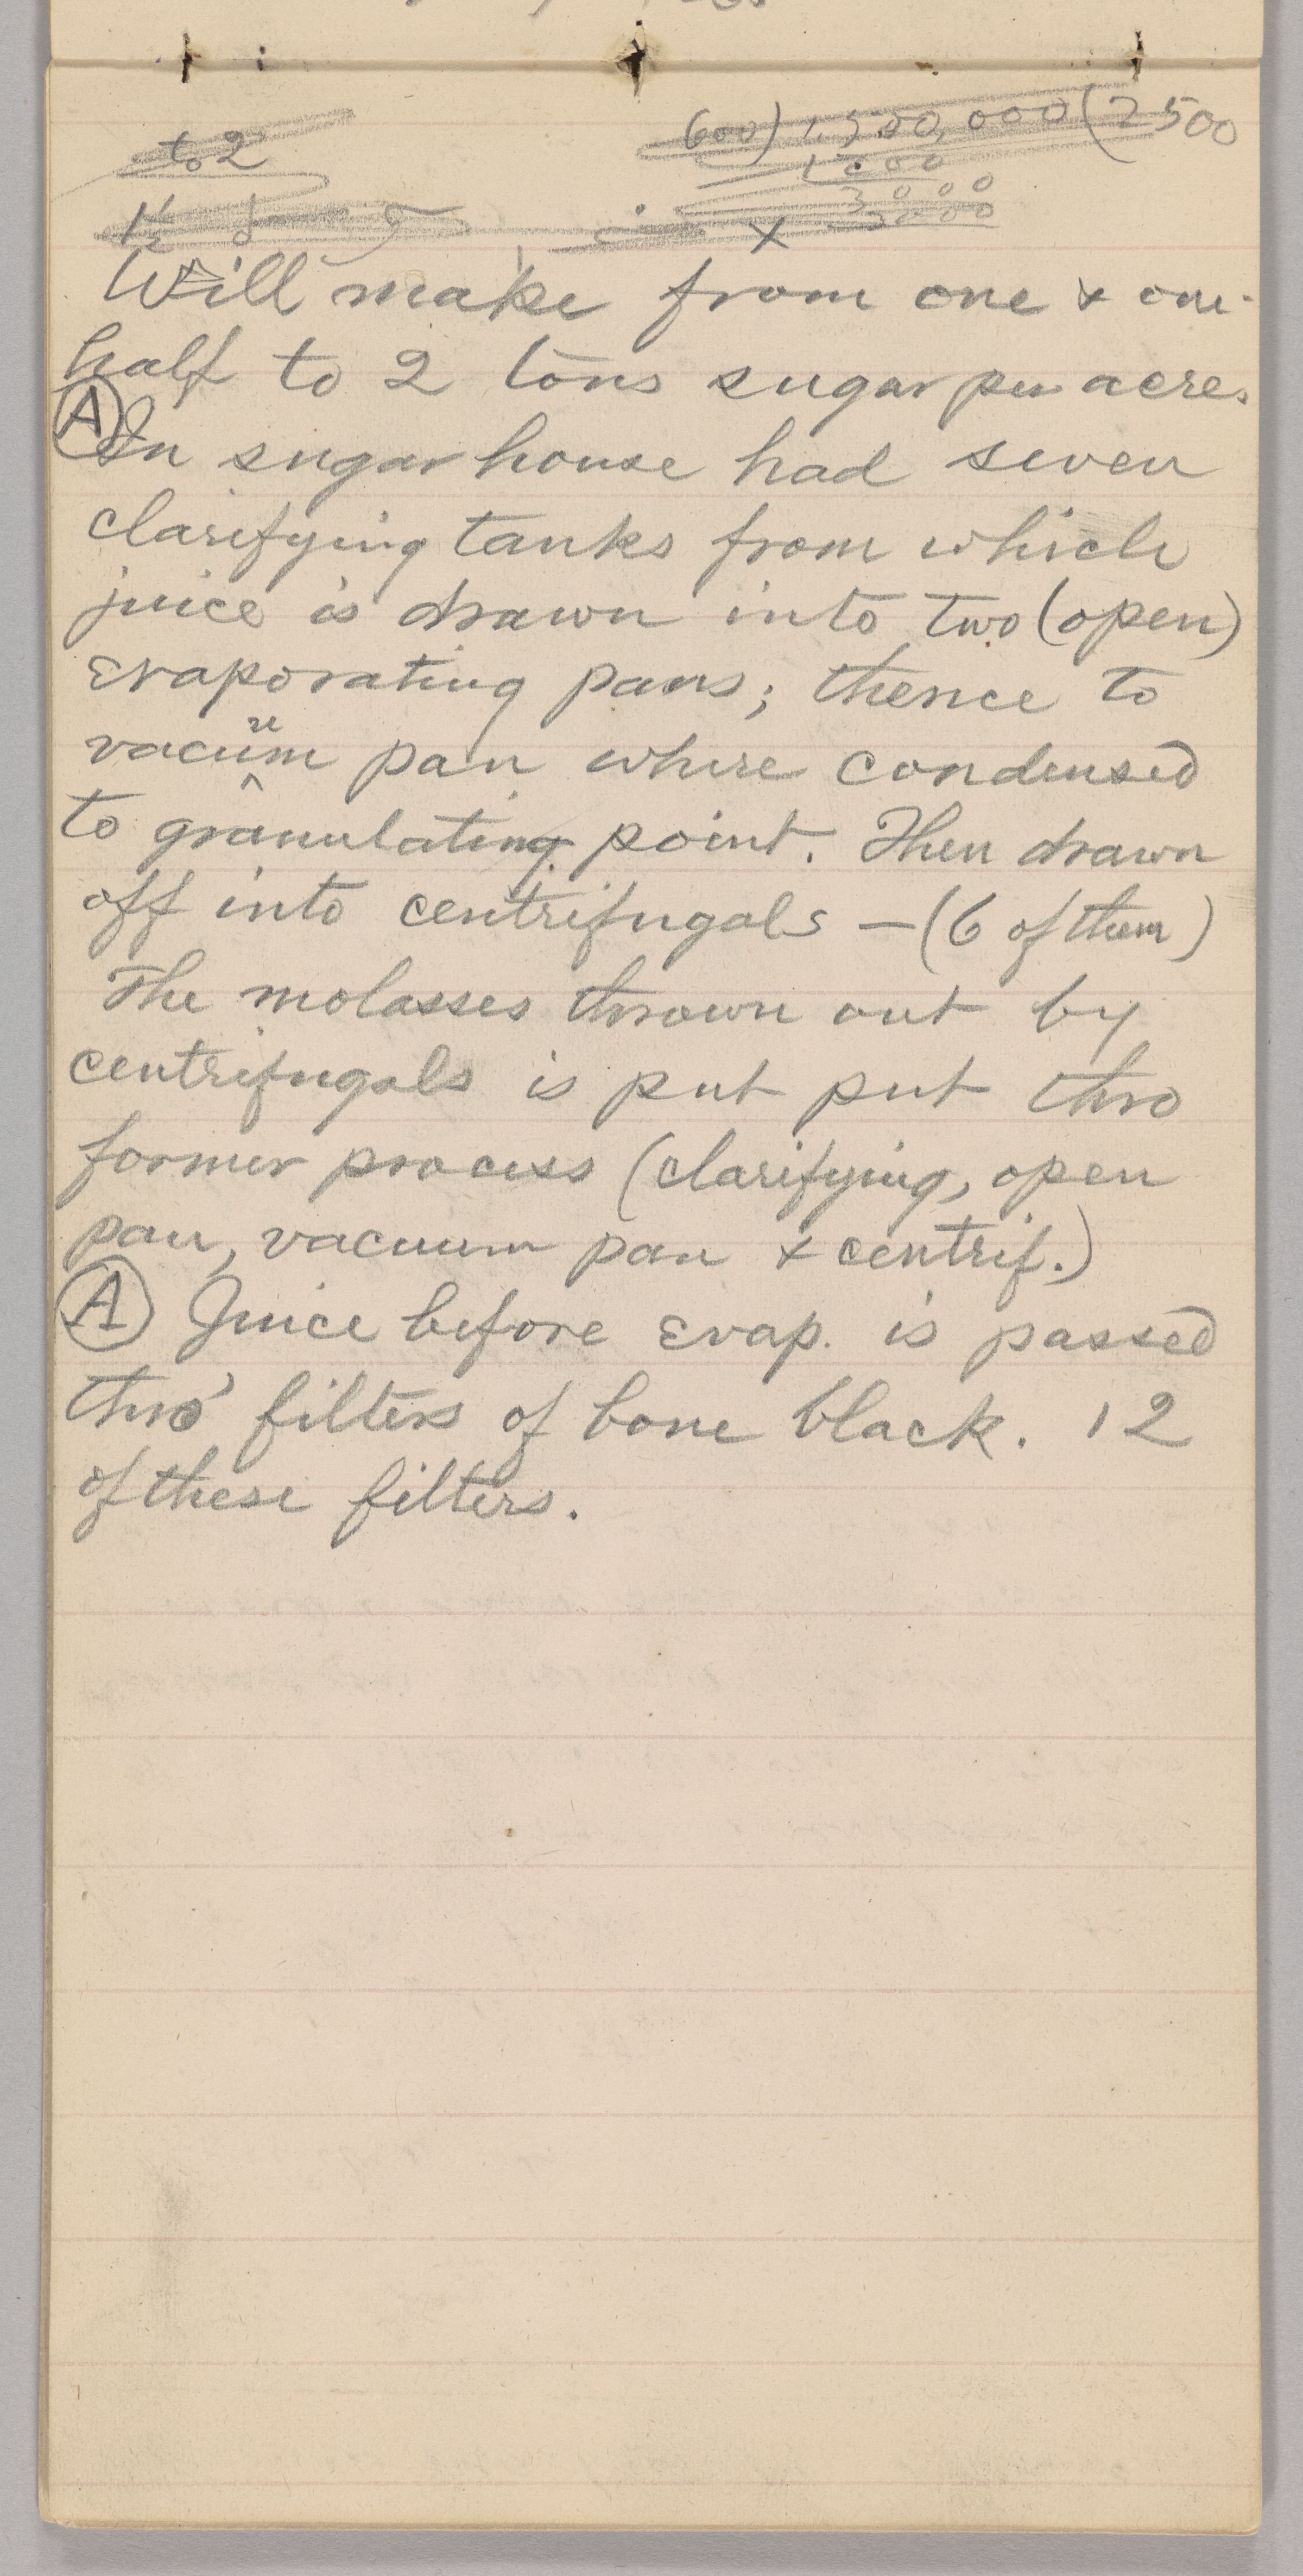 to 2
600) 1,500,000 (2500
1200
3000
3000
1½
x
Will make from one & one-
half to 2 tons sugar per acre.
(A) In sugar house had seven
clarifying tanks from which
juice is drawn into two (open)
evaporating pans; thence to
vacuum pan where condensed
to granulating point. Then drawn
off into centrifugals — (6 of them)
The molasses thrown out by
centrifugals is put put thro
former process (clarifying, open
pan, vacuum pan & centrif.)
(A) Juice before evap. is passed
thro' filters of bone black. 12
of these filters.